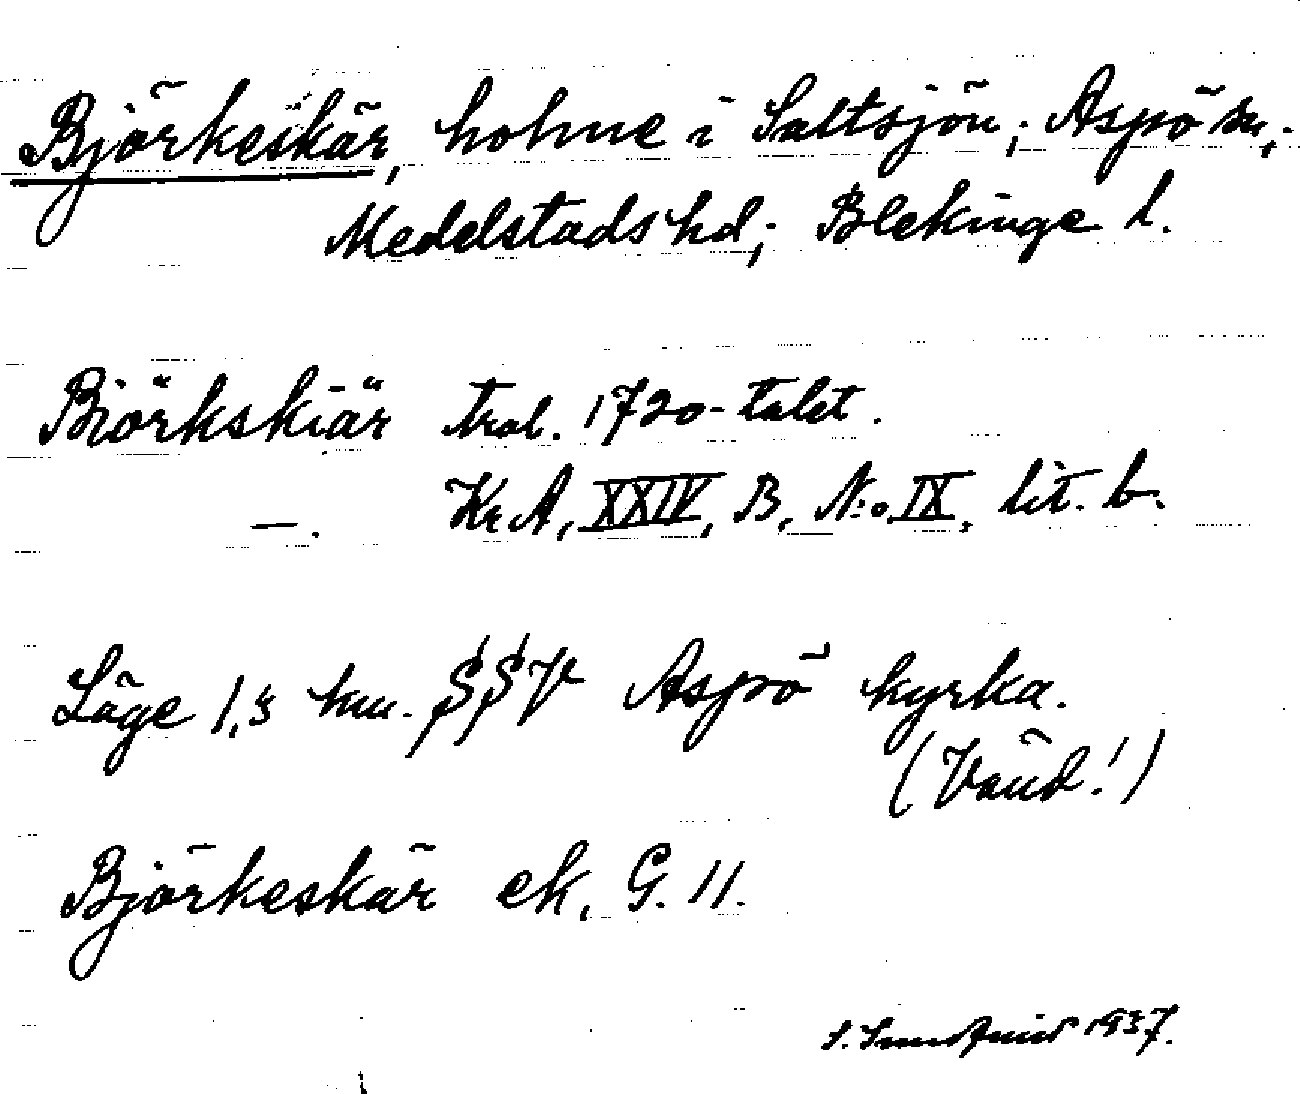 Björkeskär, holme i Saltsjön; Aspö sn,.
Medelstads hd; Blekinge l.
Biörkskiär trol. 1720-talet.
—. Kr A, XXIV, B, N:o IX, lit. b.
Läge 1,3 km. SSV Aspö kyrka.
(Vänd!)
Björkeskär ek, G. 11.
S. Sundquist 1937.